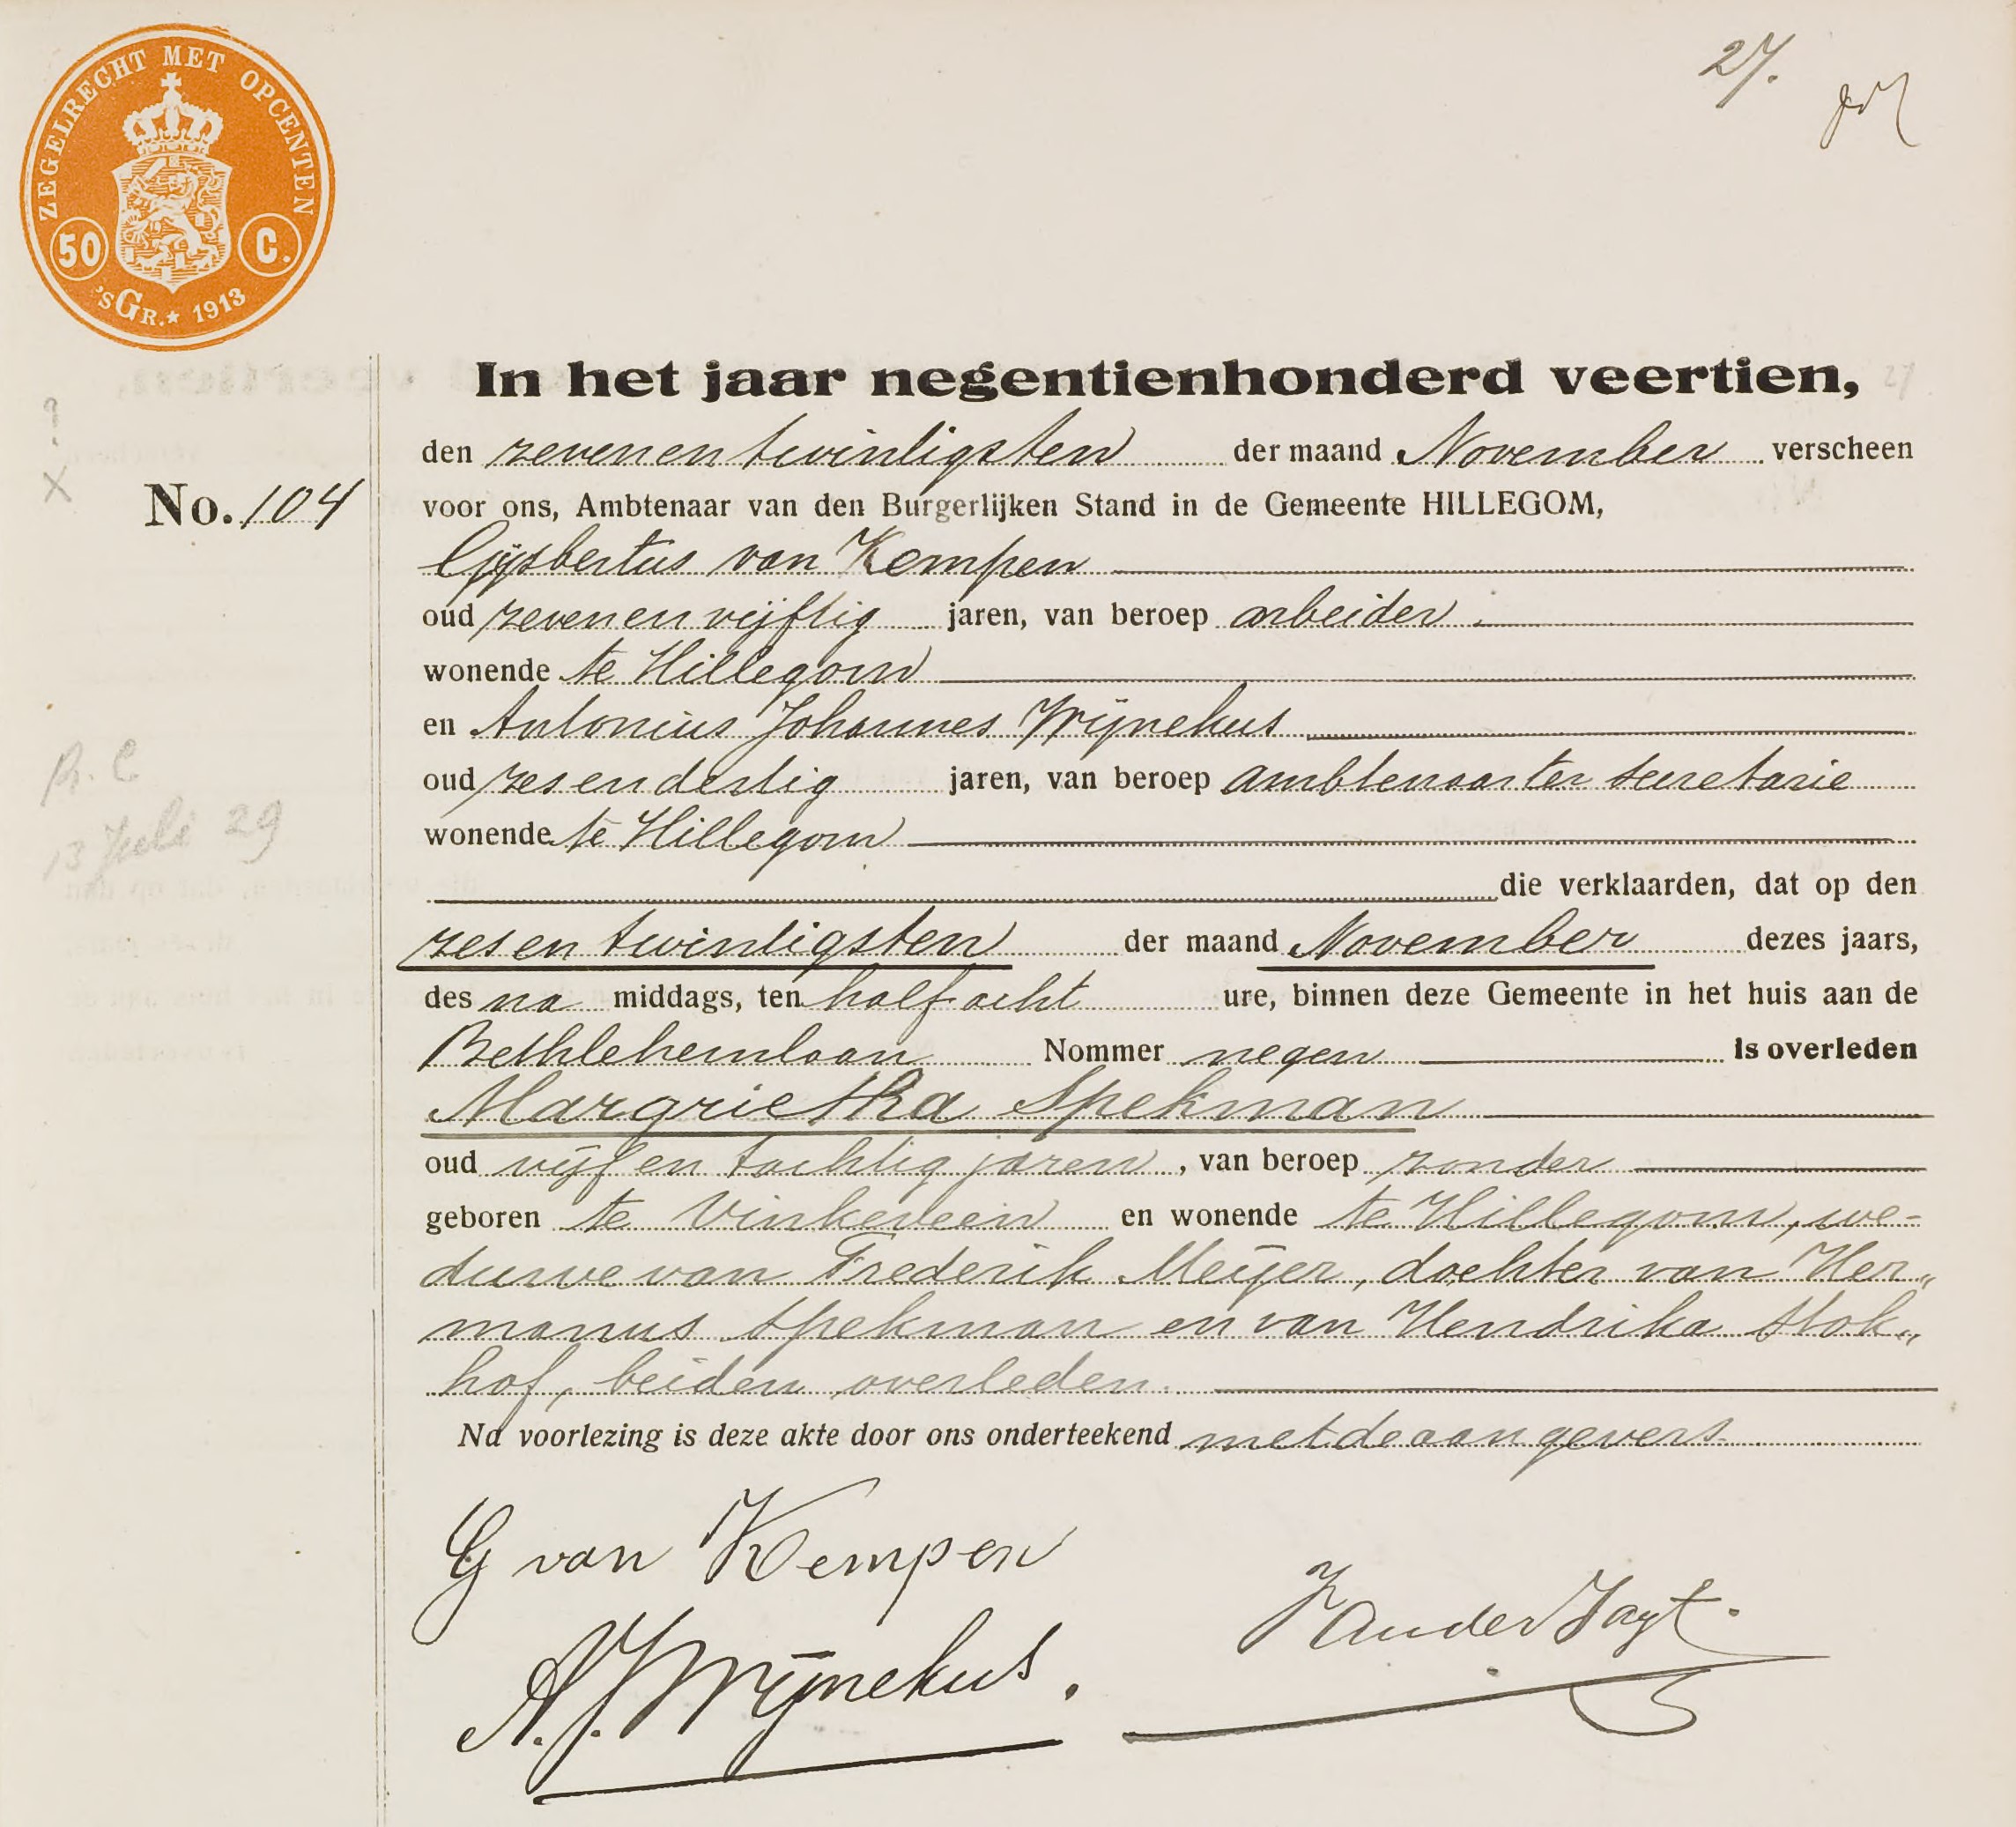 ZEGELRECHT MET OPCENTEN
50 C.
'sGR.★ 1913
27.
In het jaar negentienhonderd veertien,
den zevenentwintigsten der maand November verscheen
No. 104 voor ons, Ambtenaar van den Burgerlijken Stand in de Gemeente HILLEGOM,
Gijsbertus van Kempen
oud zevenenvijftig jaren, van beroep arbeider
wonende te Hillegom
en Antonius Johannes Wijnekus
oud zesendertig jaren, van beroep ambtenaar ter secretarie
wonende te Hillegom
die verklaarden, dat op den
zesentwintigsten der maand November dezes jaars,
des na middags, ten half acht ure, binnen deze Gemeente in het huis aan de
Bethlehemlaan Nommer negen is overleden
Margrietha Spekman
oud vijfentachtig jaren, van beroep zonder
geboren te Vinkeveen en wonende te Hillegom, we-
duwe van Frederik Meijer, dochter van Her„
manus Spekman en van Hendrika Stok„
hof, beiden overleden.
Na voorlezing is deze akte door ons onderteekend met de aangevers.
G van Kempen
A.J. Wijnekus.
VanderJagt.
?
X
R. C
13 Juli 29